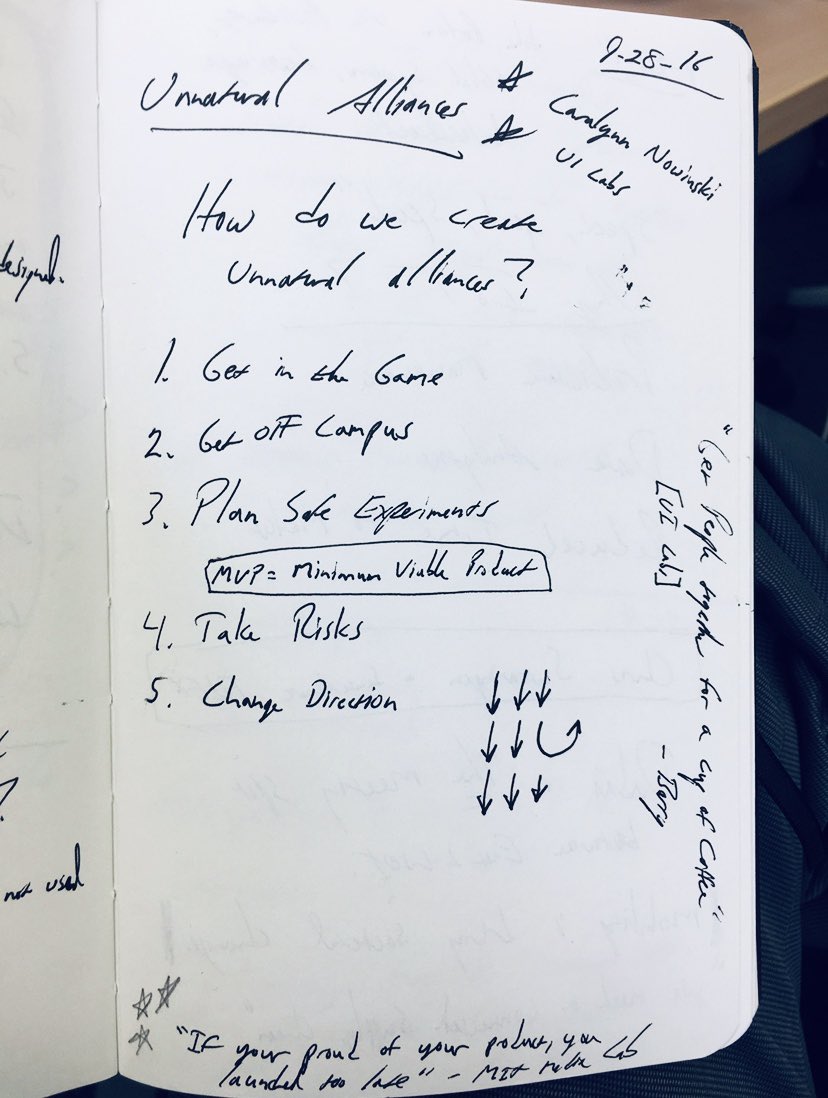 9-28-16
Unnatural Alliances
Caralynn Nowinski
UI Labs
How do we create
Unnatural alliances?
1. Get in the Game
2. Get off Campus
3. Plan Safe Experiments
MVP = Minimum Viable Product
4. Take Risks
5. Change Direction
"Get People together for a cup of Coffee"
[UI Lab]
- Barry
"If your proud of your product, you
launched too late" - MIT Media Lab
designed.
?
not used